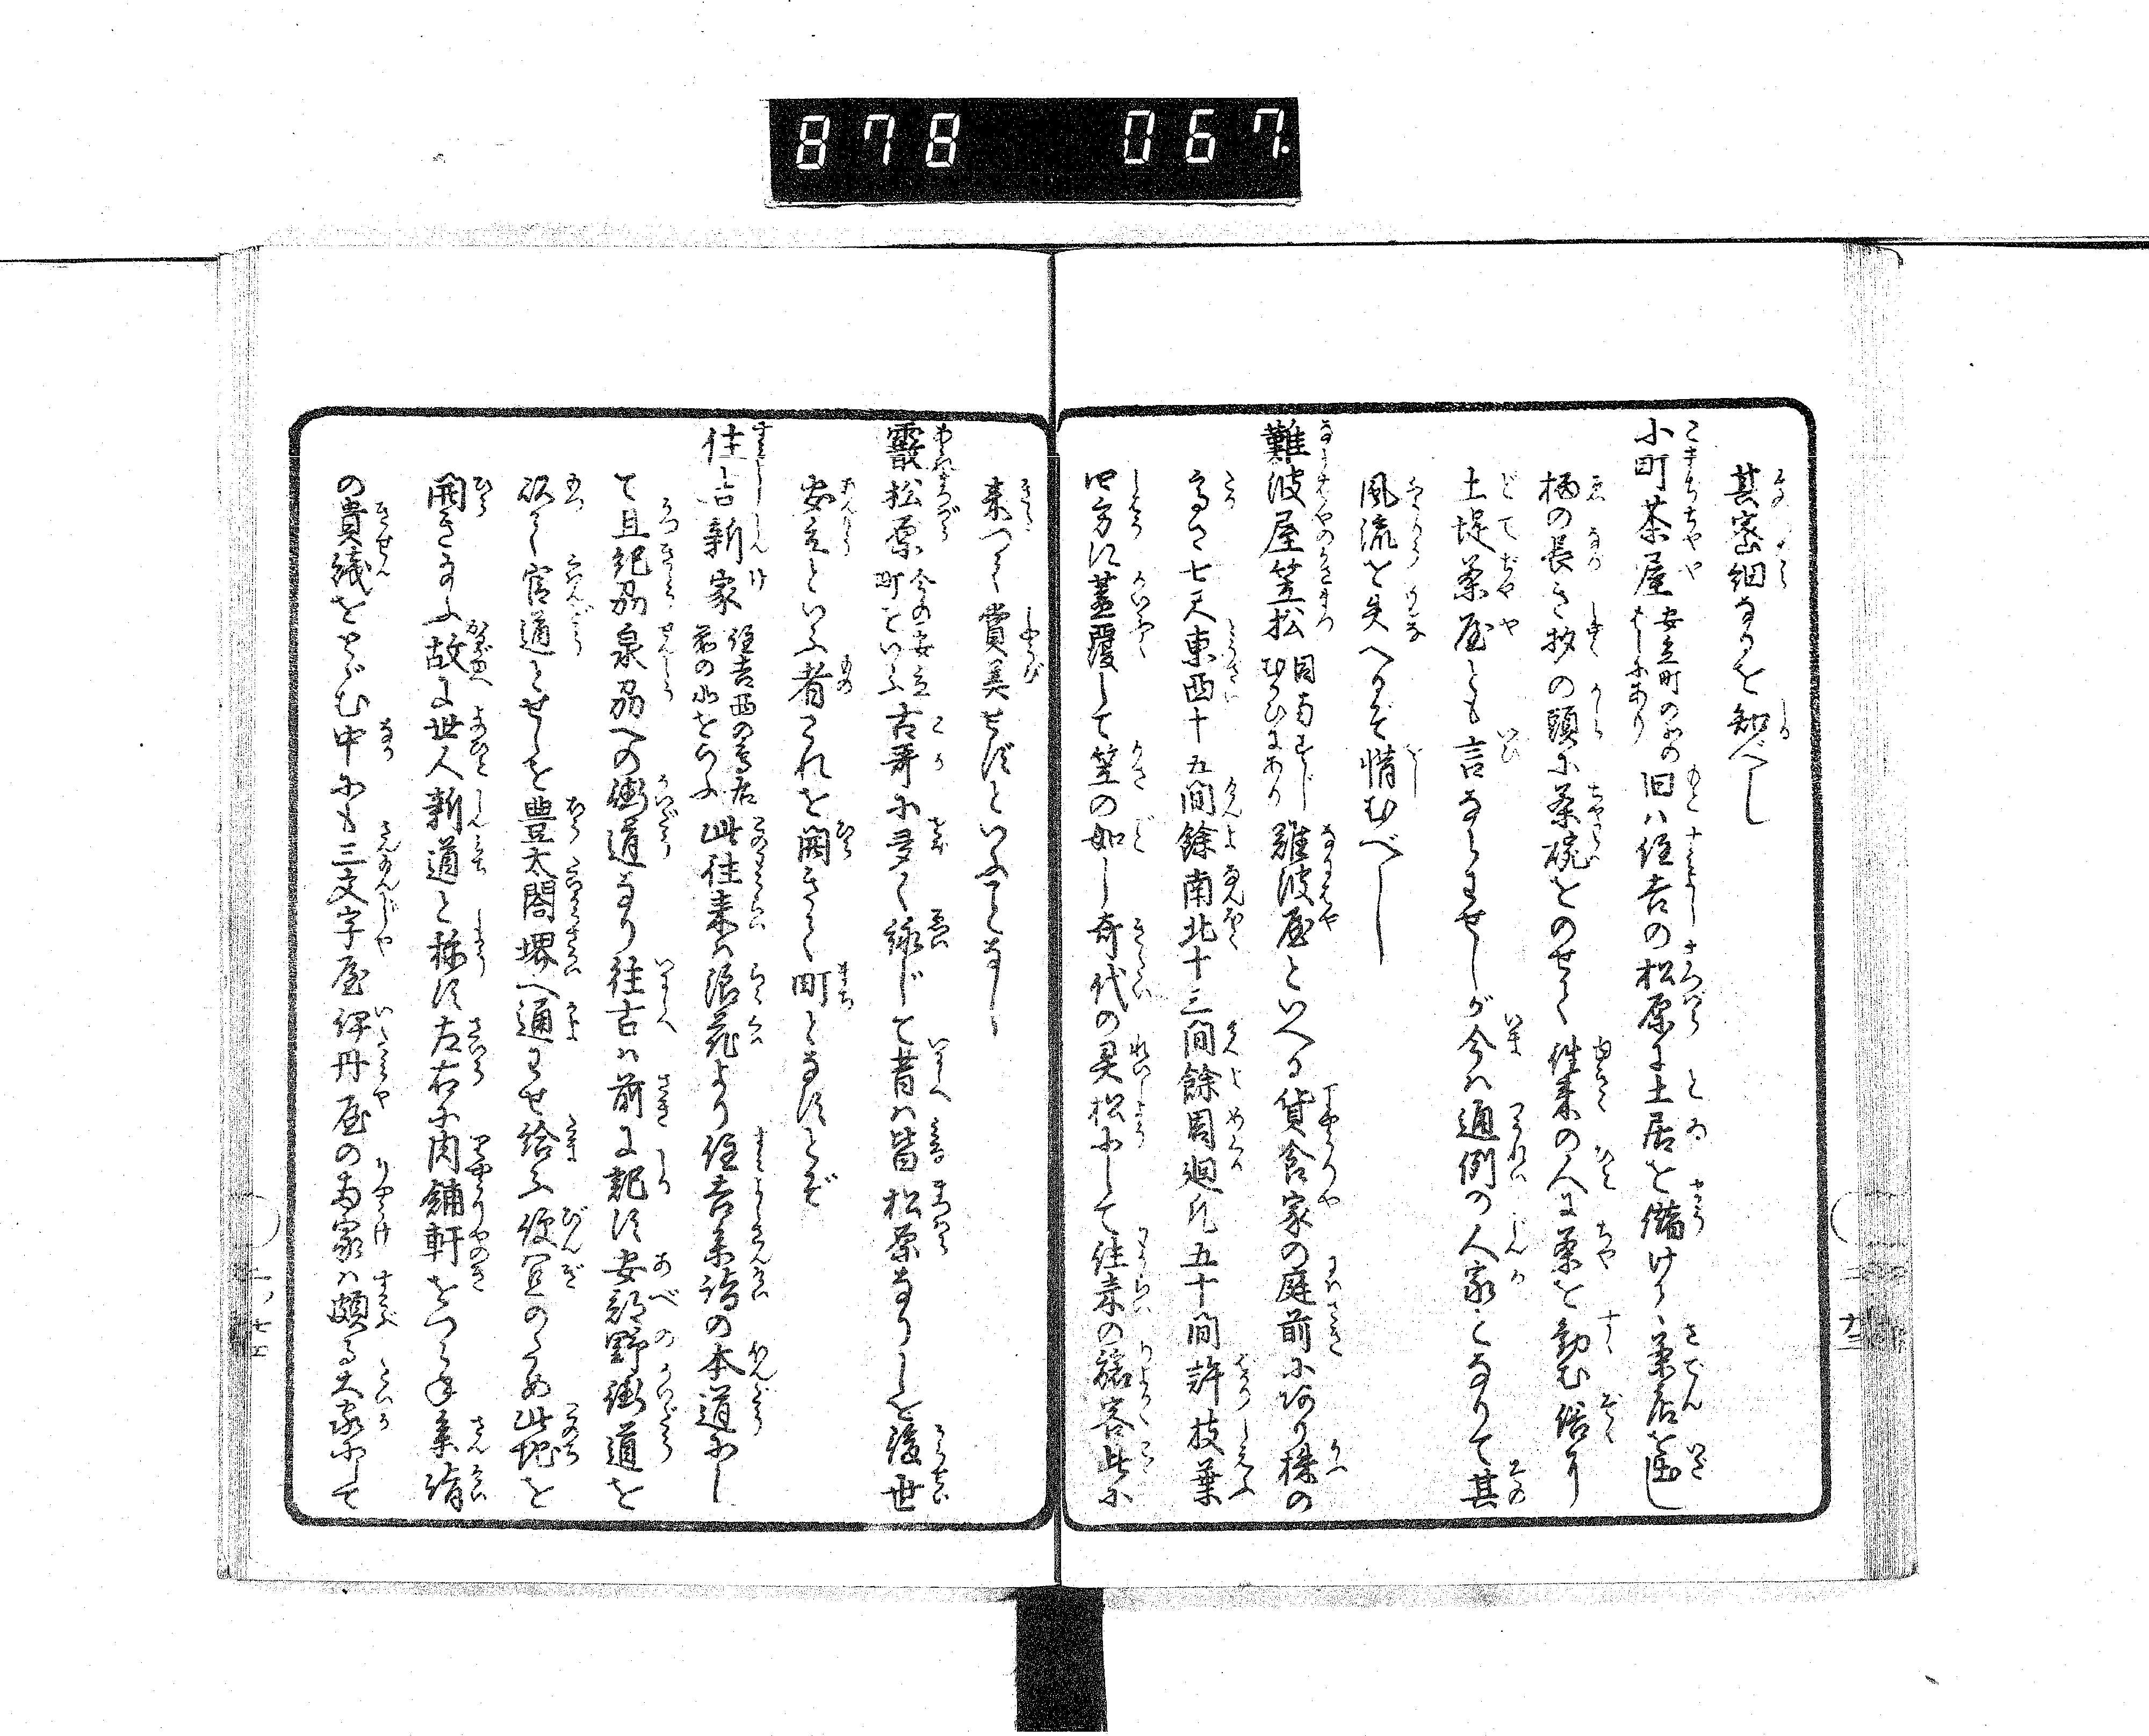 878 067
其密細なるを知べし
小町茶屋 安立町の北の
はしにあり 旧ハ住吉の松原に土居を儲けくゝ茶店を出し
柄の長き杓の頭に茶碗をのせて往来の人に茶を勧む俗に
土堤茶屋とも言ならわせしが今ハ通例の人家となりて其
風流を失へるぞ惜むべし
難波屋笠松 同南すじ
むかひにあり 難波屋といへる貨食家の庭前にあり株の
高さ七尺東西十五間餘南北十三間餘周廻凡五十間許枝葉
四方に蓋覆して笠の如し奇代の異松にして往来の旅客此に
来つて賞美せずといふことなし
霰松原 今の安立
町といふ 古哥に多く詠じて昔ハ皆松原なりしを後世
安立といふ者これを開きて町となすとぞ
住吉新家 住吉西の鳥居
前の北をいふ 此往来ハ浪花より住吉参詣の本道にし
て且紀刕泉刕への街道なり往古ハ前に記す安部野街道を
以て官道とせしを豊太閤堺へ通わせ給ふ便宜のため此地を
開き給ふ故に世人新道と称す左右に肉舗軒をつらね参詣
の貴賤をとゞむ中にも三文字屋伊丹屋の両家ハ頗る大家にして